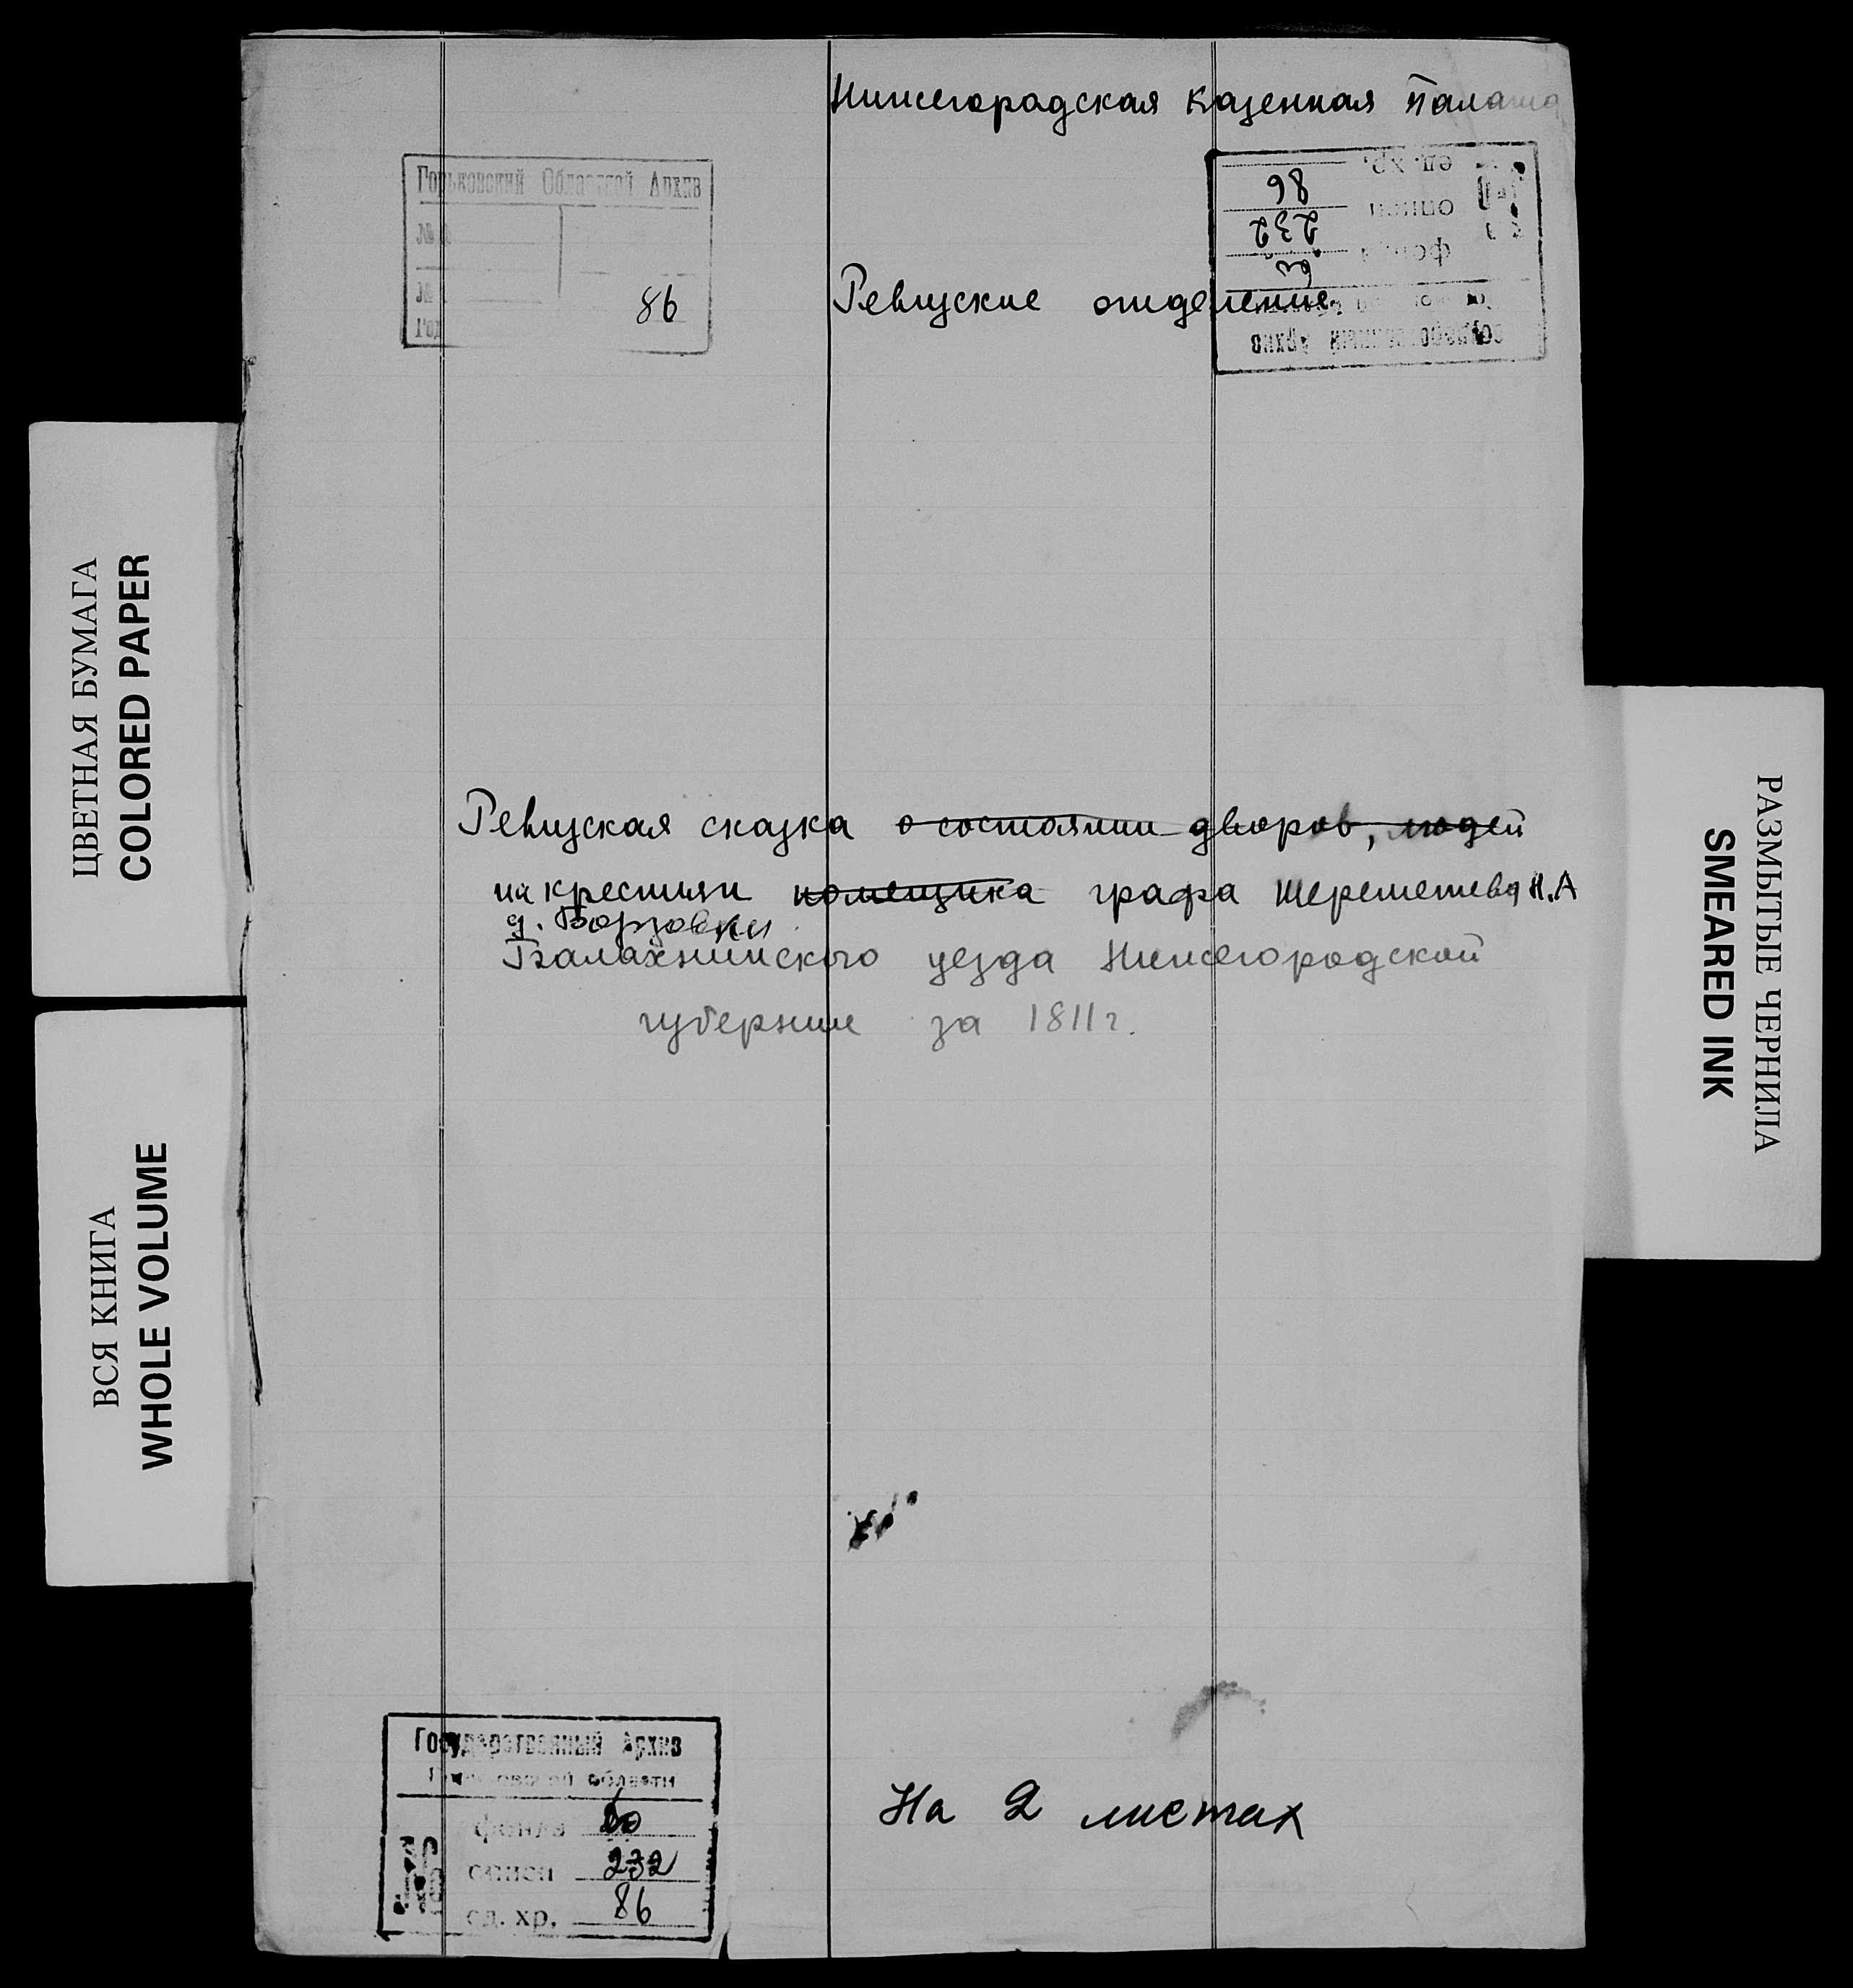 Нижегородская казенная палата
Горьковский Областной Архив
№
№
Год
86
ед. хр. 86
описи 232
фонд 60
Государственный Архив
Ревизские отделение
ЦВЕТНАЯ БУМАГА
COLORED PAPER
Ревизская сказка о состоянии дворов, людей
на крестьян помещика графа Шереметева Н.А
д. Борзовки
Балахнинского уезда Нижегородской
губернии за 1811 г.
РАЗМЫТЫЕ ЧЕРНИЛА
SMEARED INK
ВСЯ КНИГА
WHOLE VOLUME
Государственный Архив
области
фонда 60
описи 232
ед. хр. 86
На 2 листах